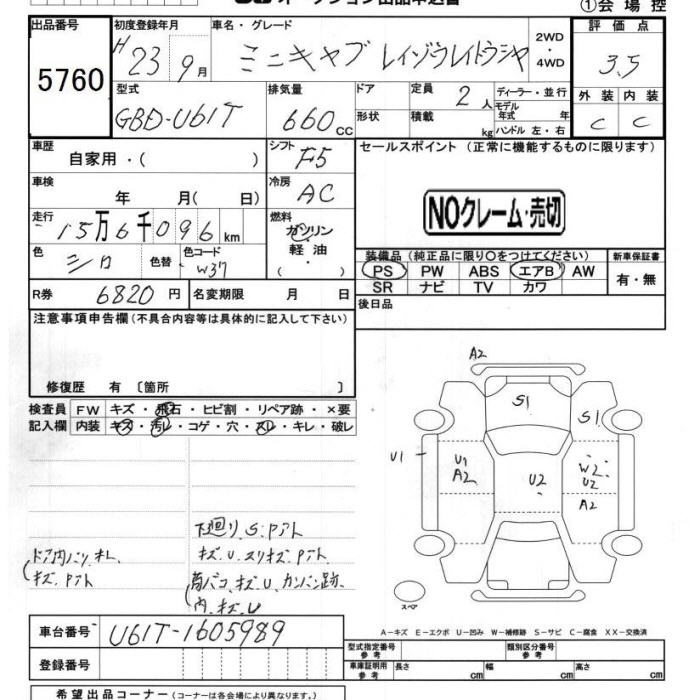 ①会場控
出品番号 初度登録年月 車名・グレード 2WD・4WD 評価点
5760 H23 9月 ミニキャブ レイゾウレイトウシャ 3.5
外装 内装
C C
型式 排気量 ドア 定員 2人 ディーラー・並行
モデル年式 年
GBD-U61T 660cc 形状 積載 kg ハンドル 左・右
車歴 シフト セールスポイント (正常に機能するものに限ります)
自家用・( ) F5
車検 冷房
年 月( 日) AC
NOクレーム・売切
走行 燃料
15万6千096km ガソリン
軽油
色 色替 色コード
シロ W37
装備品 (純正品に限り○をつけてください) 新車保証書
PS PW ABS エアB AW 有・無
SR ナビ TV カワ
R券 6820円 名変期限 月 日 後日品
注意事項申告欄(不具合内容等は具体的に記入して下さい)
修復歴 有 〔箇所 〕
検査員 FW キズ・飛石・ヒビ割・リペア跡・×要
記入欄 内装 キズ・汚レ・コゲ・穴・スレ・キレ・破レ
A2
S1
S1
U1
U1
A2
U2
W2
U2
A2
下廻り S.
キズ.U.スリキズ.
キズ.
内.キズ.U
スペア
A-キズ E-エクボ U-凹み W-補修跡 S-サビ C-腐食 XX-交換済
車台番号 U61T-1605989
型式指定番号 参考 類別区分番号 参考
登録番号 車庫証明用 参考 長さ cm 幅 cm 高さ cm
希望出品コーナー (コーナーは各会場により異なります。)